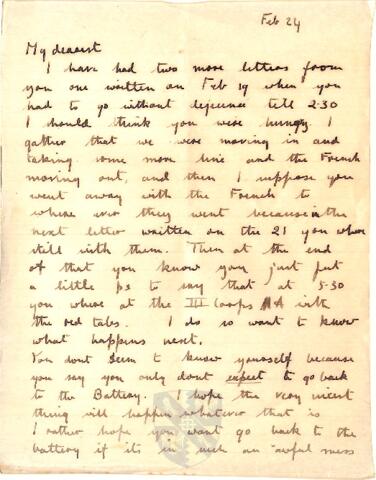 Feb 24
My dearest
I have had two more letters from
you one written on Feb 19 when you
had to go without dejeuner till 2.30
I should think you were hungry. I
gather that we were moving in and
taking some more line and the French
moving out, and then I suppose you
went away with the French to
where ever they went because in the
next letter written on the 21 you where
still with them. Then at the end
of that you know you just put
a little ps to say that at 5-30
you where at the III Corps HA with
the red tabs. I do so want to know
what happens next.
You dont seem to know yourself because
you say you only dont expect to go back
to the Battery. I hope the very nicest
thing will happen whatever that is
I rather hope you wont go back to the
battery if its in such an awful mess